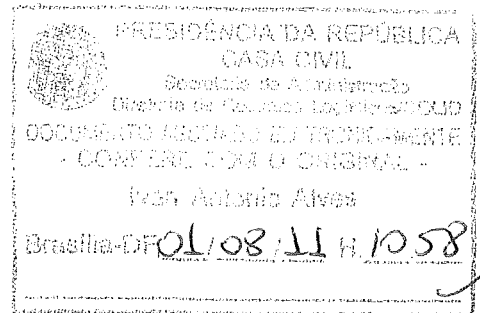 PRESIDÊNCIA DA REPÚBLICA
CASA CIVIL
Secretaria de Administração
Diretoria de
DOCUMENTO ASSINADO ELETRONICAMENTE
- CONFERE COM O ORIGINAL -
Ivan Antonio Alves
Brasília-DF 01/08/11 H. 10:58